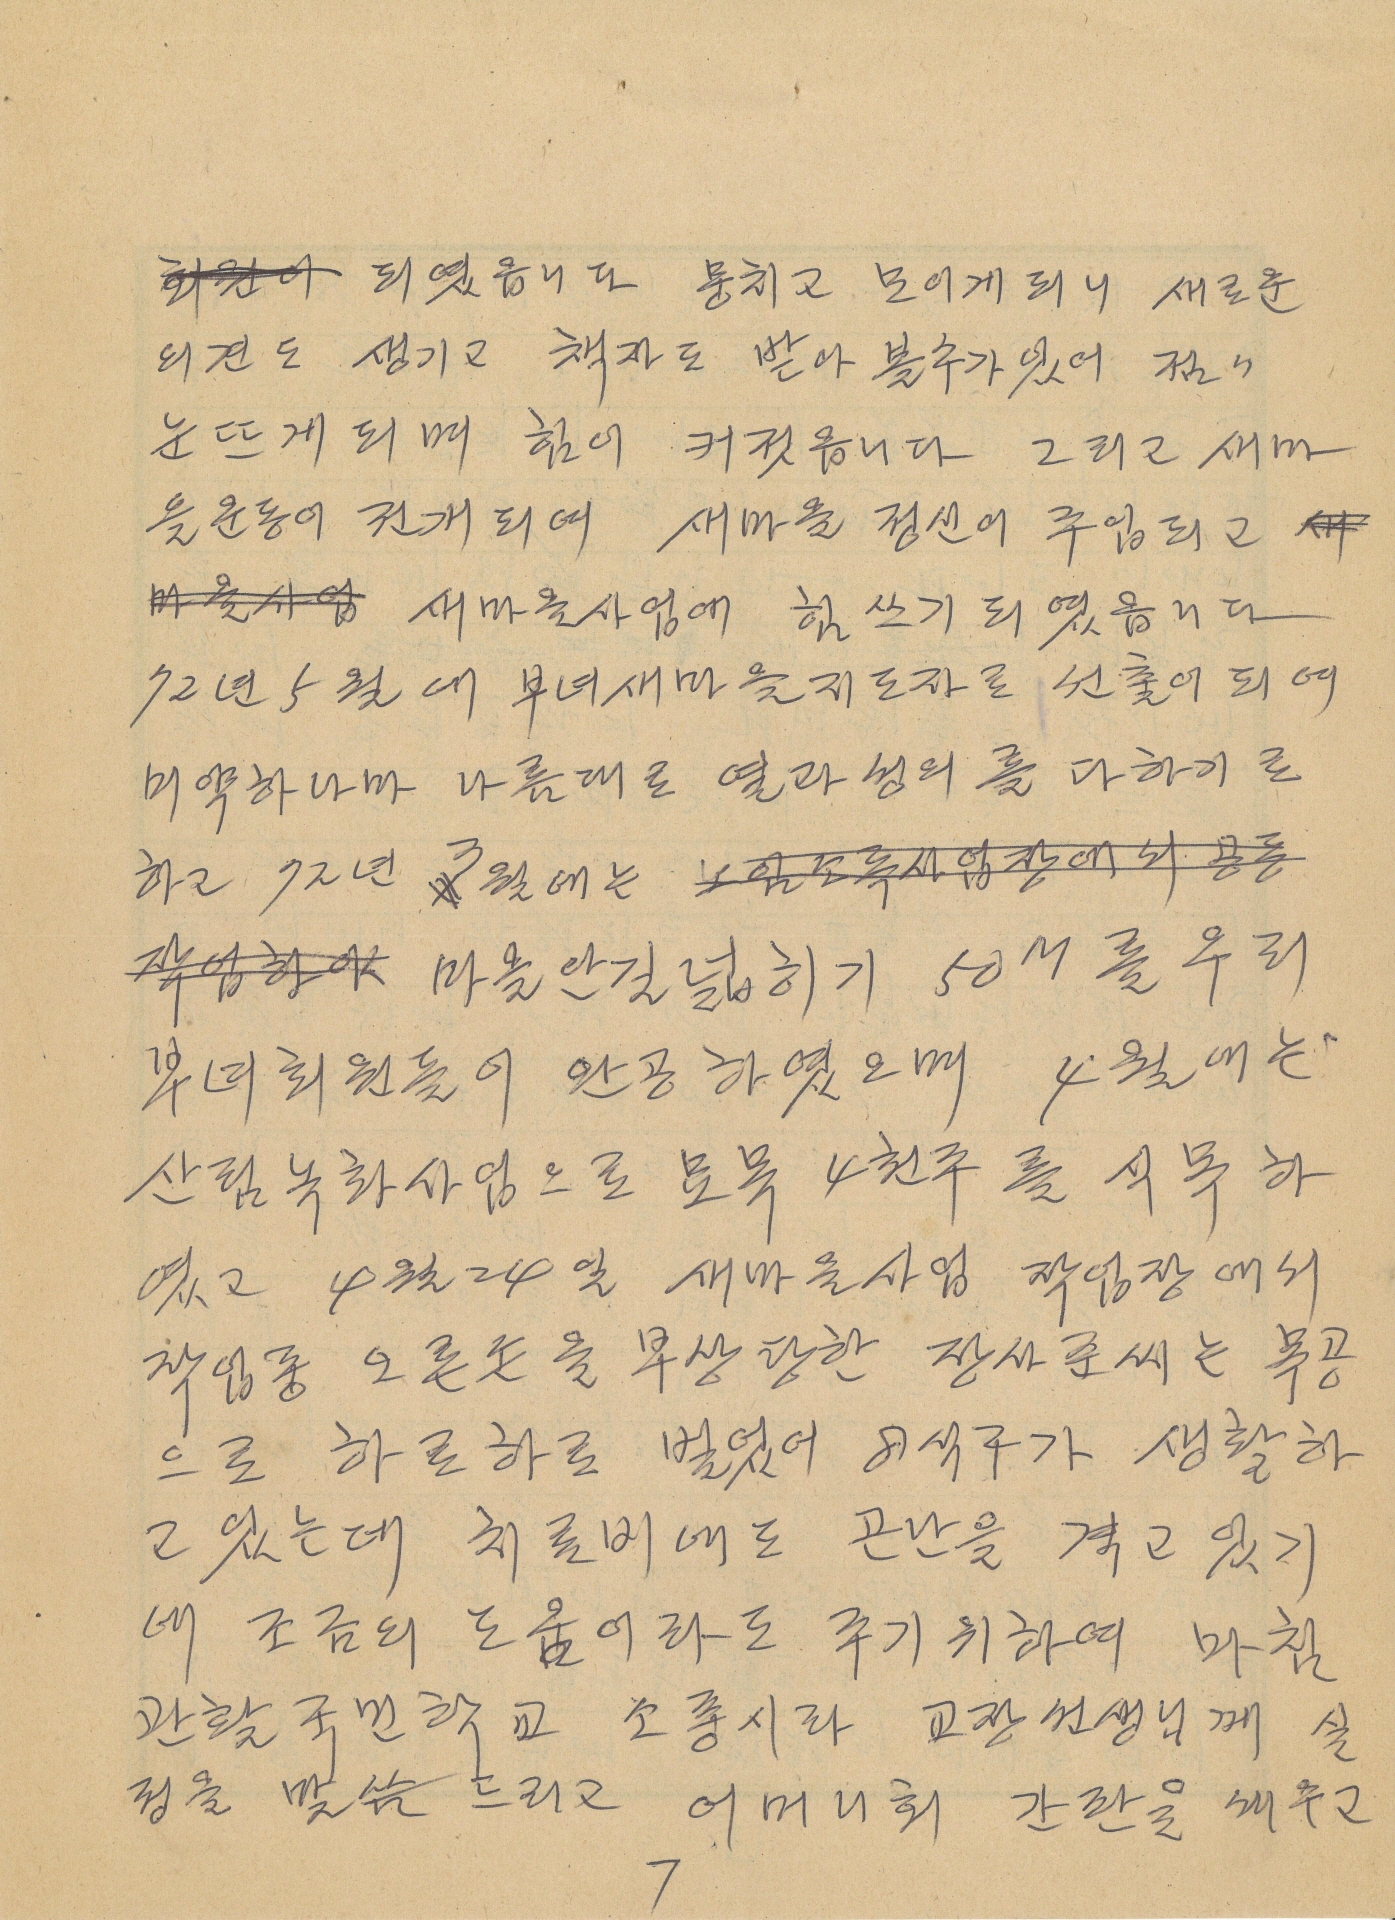 회원이 되였읍니다 뭉치고 모이게되니 새로운
의견도 생기고 책자도 받아 볼수가있어 점〃
눈뜨게되며 힘이 커젓읍니다 그리고 새마
을운동이 전개되여 새마을 정신이 주입되고 새
마을사업 새마을사업에 힘쓰기되였읍니다
72년 5월에 부녀새마을지도자로 선출이되여
미약하나마 나름대로 열과성의를 다하기로
하고 72년 3월에는 노임소득사업장에서 공동
작업하여 마을안길넓히기 50M를 우리
부녀회원들이 완공하였으며 4월에는
산림녹화사업으로 묘목 4천주를 식목하
였고 4월24일 새마을사업 작업장에서
작업중 오른손을 부상당한 장사준씨는 목공
으로 하로하로 벌었어 8식구가 생활하
고있는데 치료비에도 곤난을 격고있기
에 조금의 도움이라도 주기위하여 마침
관할국민학교 소풍시라 교장선생님께 실
정을 말씀드리고 어머니회 간판을 세우고
7